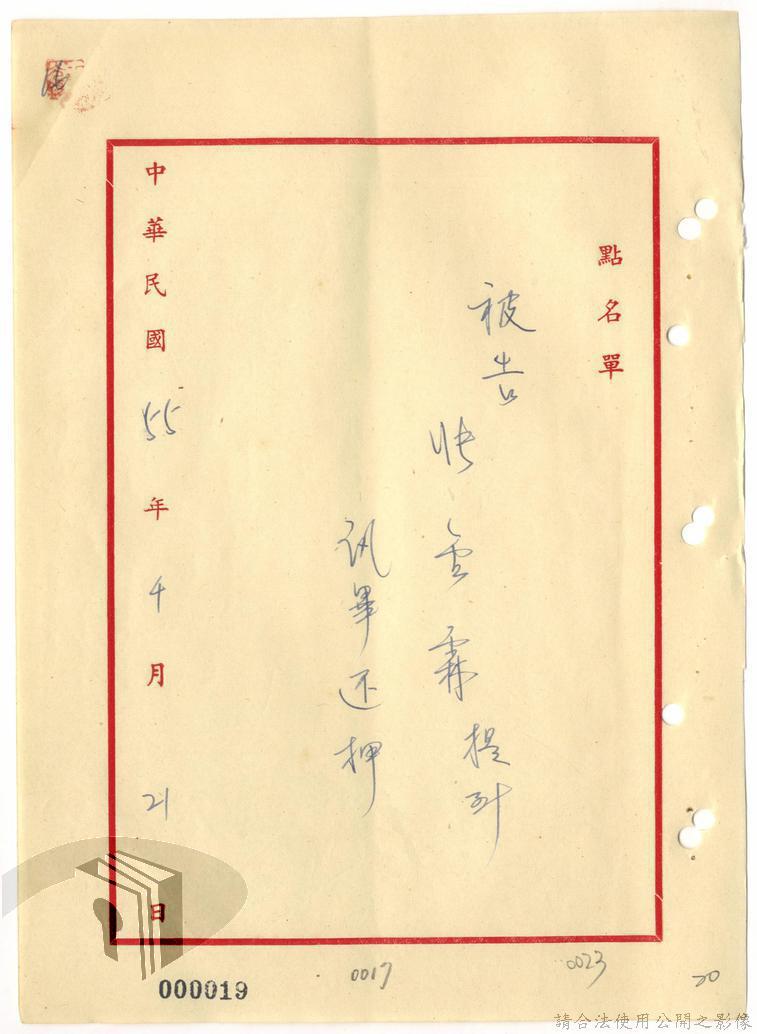 點名單
被告
張 霖 提到
訊畢还押
中華民國 55 年 4 月 21 日
000019
0017
0023
20
請合法使用公開之影像